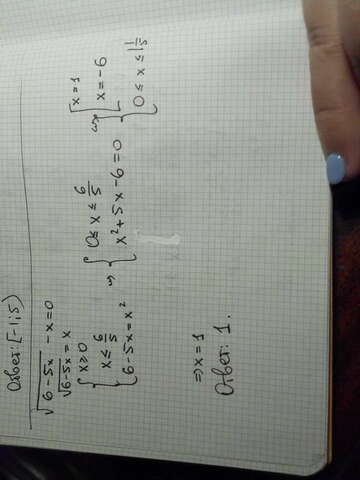 Ответ: [-1; 5)
√(6-5x) - x = 0
√(6-5x) = x
{ x ≥ 0
x ≤ 6/5
6-5x = x²
⇔ { 0 ≤ x ≤ 6/5
x² + 5x - 6 = 0
⇔ { [ x = 1
x = -6
0 ≤ x ≤ 1 1/5
⇒ x = 1
Ответ: 1.